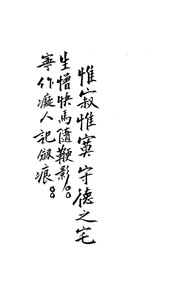 惟寂惟寞守德之宅
生憎快馬隨鞭影。。
寧作癡人記劔痕。。